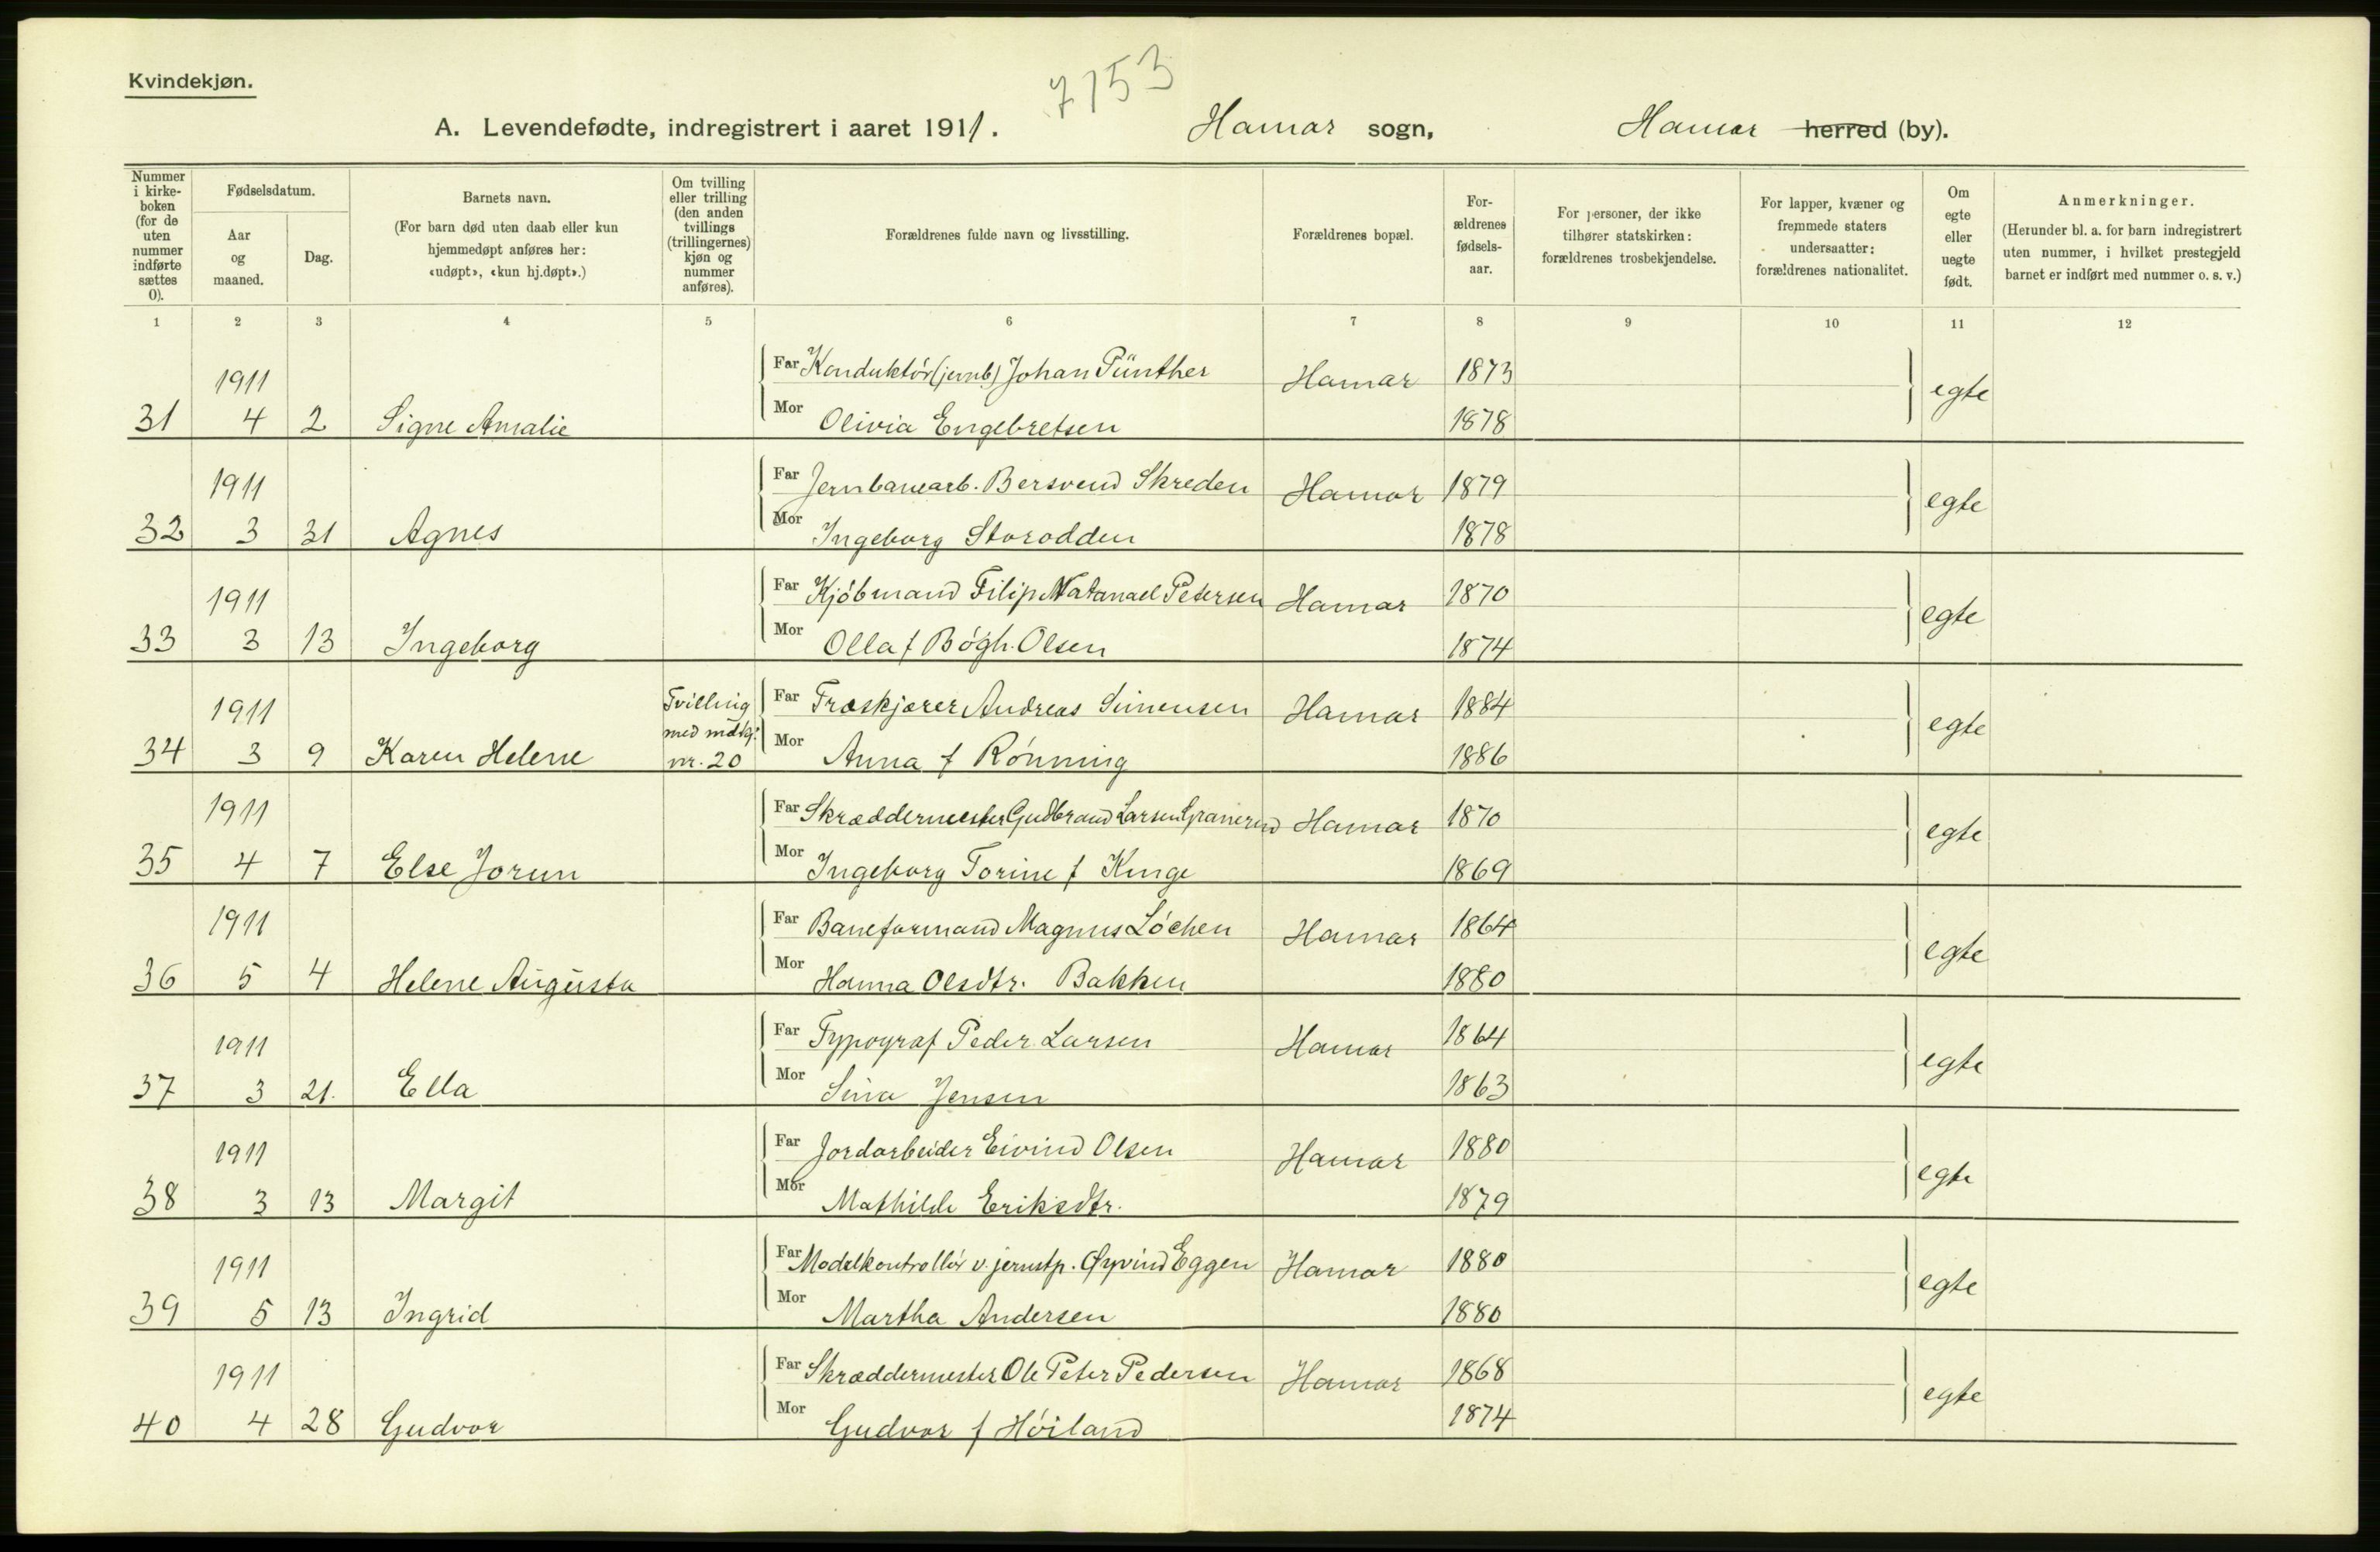 Kvindekjøn.
7153
A. Levendefødte, indregistrert i aaret 1911. Hamar sogn, Hamar herred (by).
Nummer i kirkeboken (for de uten nummer indførte sættes 0).
Fødselsdatum.
Aar og maaned.
Dag.
Barnets navn.
(For barn død uten daab eller kun hjemmedøpt anføres her: «udøpt», «kun hj.døpt».)
Om tvilling eller trilling (den anden tvillings (trillingernes) kjøn og nummer anføres).
Forældrenes fulde navn og livsstilling.
Forældrenes bopæl.
Forældrenes fødselsaar.
For personer, der ikke tilhører statskirken: forældrenes trosbekjendelse.
For lapper, kvæner og fremmede staters undersaatter: forældrenes nationalitet.
Om egte eller uegte født.
Anmerkninger.
(Herunder bl. a. for barn indregistrert uten nummer, i hvilket prestegjeld barnet er indført med nummer o. s. v.)
1 2 3 4 5 6 7 8 9 10 11 12
1911 Far Konduktör (jernb.) Johan Pünther Hamar 1873 egte
31 4 2 Signe Amalie Mor Olivia Engebretsen 1878
1911 Far Jernbanearb. Bersvend Skreden Hamar 1879 egte
32 3 31 Agnes Mor Ingeborg Storodden 1878
1911 Far Kjöbmand Filip Natanael Petersen Hamar 1870 egte
33 3 13 Ingeborg Mor Olla f Bögh-Olsen 1874
1911 Tvilling Far Træskjærer Andreas Simensen Hamar 1884 egte
34 3 9 Karen Helene med mdkj. nr. 20 Mor Anna f Rönning 1886
1911 Far Skræddermester Gudbrand Larsen Granerud Hamar 1870 egte
35 4 7 Else Jorun Mor Ingeborg Torine f Kinge 1869
1911 Far Baneformand Magnus Löchen Hamar 1864 egte
36 5 4 Helene Augusta Mor Hanna Olsdtr. Bakken 1880
1911 Far Typograf Peder Larsen Hamar 1864 egte
37 3 21. Ella Mor Sina Jensen 1863
1911 Far Jordarbeider Eivind Olsen Hamar 1880 egte
38 3 13 Margit Mor Mathilde Eriksdtr. 1879
1911 Far Modelkontrollör v. jernstp. Øyvind Eggen Hamar 1880 egte
39 5 13 Ingrid Mor Martha Andersen 1880
1911 Far Skræddermester Ole Peter Pedersen Hamar 1868 egte
40 4 28 Gudvor Mor Gudvor f Höiland 1874